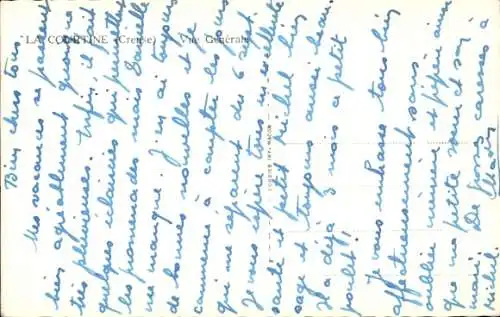 LA COURTINE (Creuse) Vue Générale
Bien chers tous
Mes vacances se passent
bien agréablement quoique
très pluvieuses. Enfin, il y a
quelques éclaircies qui permettent
les promenades mais Danielle
me manque. J'en ai toujours
de bonnes nouvelles et je
commence à compter les jours
qui me séparent du 6 sept.
Je vous espère tous en excellente
santé et petit Michel bien
sage et toujours aussi beau.
Il a déjà 3 mois ce petit
poulet!
Je vous embrasse tous bien
affectueusement sans
oublier mémère et pépère ainsi
que ma petite soeur et son
mari. De grosses caresses à
Michel.